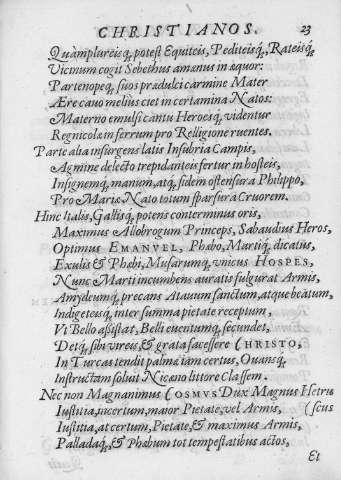 CHRISTIANOS. 23
Quàmplureisq́; potest Equiteis, Pediteisq́;, Rateisq́;
Vicinum cogit Sebethus amœnus in æquor:
Partenopeq́; suos prædulci carmine Mater
Ære cauo melius ciet in certamina Natos:
Materno emulsi cantu Heroesq́; videntur
Regnicolæ in ferrum pro Relligione ruentes.
Parte alia insurgens latis Insubria Campis,
Agmine delecto trepidanteis fertur in hosteis,
Insignemq́; manum, atq́; fidem ostensura Philippo,
Pro Mariæ Nato totum sparsura Cruorem.
Hinc Italis, Gallisq́; potens conterminus oris,
Maximus Allobrogum Princeps, Sabaudius Heros,
Optimus EMANVEL, Phœbo, Martiq́; dicatus,
Exulis & Phœbi, Musarumq́; vnicus HOSPES,
Nunc Marti incumbens auratis fulgurat Armis,
Amydeumq́; precans Atauum sanctum, atque beatum,
Indigeteisq́; inter summa pietate receptum,
Vt Bello assistat, Belli euentumq́; secundet,
Detq́; sibi vireis, & grata facessere CHRISTO,
In Turcas tendit palmæ iam certus, Ouansq́;
Instructam soluit Nicæno littore Classem.
Nec non Magnanimus COSMVS Dux Magnus Hetru
Iustitia, incertum, maior Pietate, vel Armis, (scus
Iustitia, at certum, Pietate, & maximus Armis,
Palladaq́;, & Phœbum tot tempestatibus actos,
Et